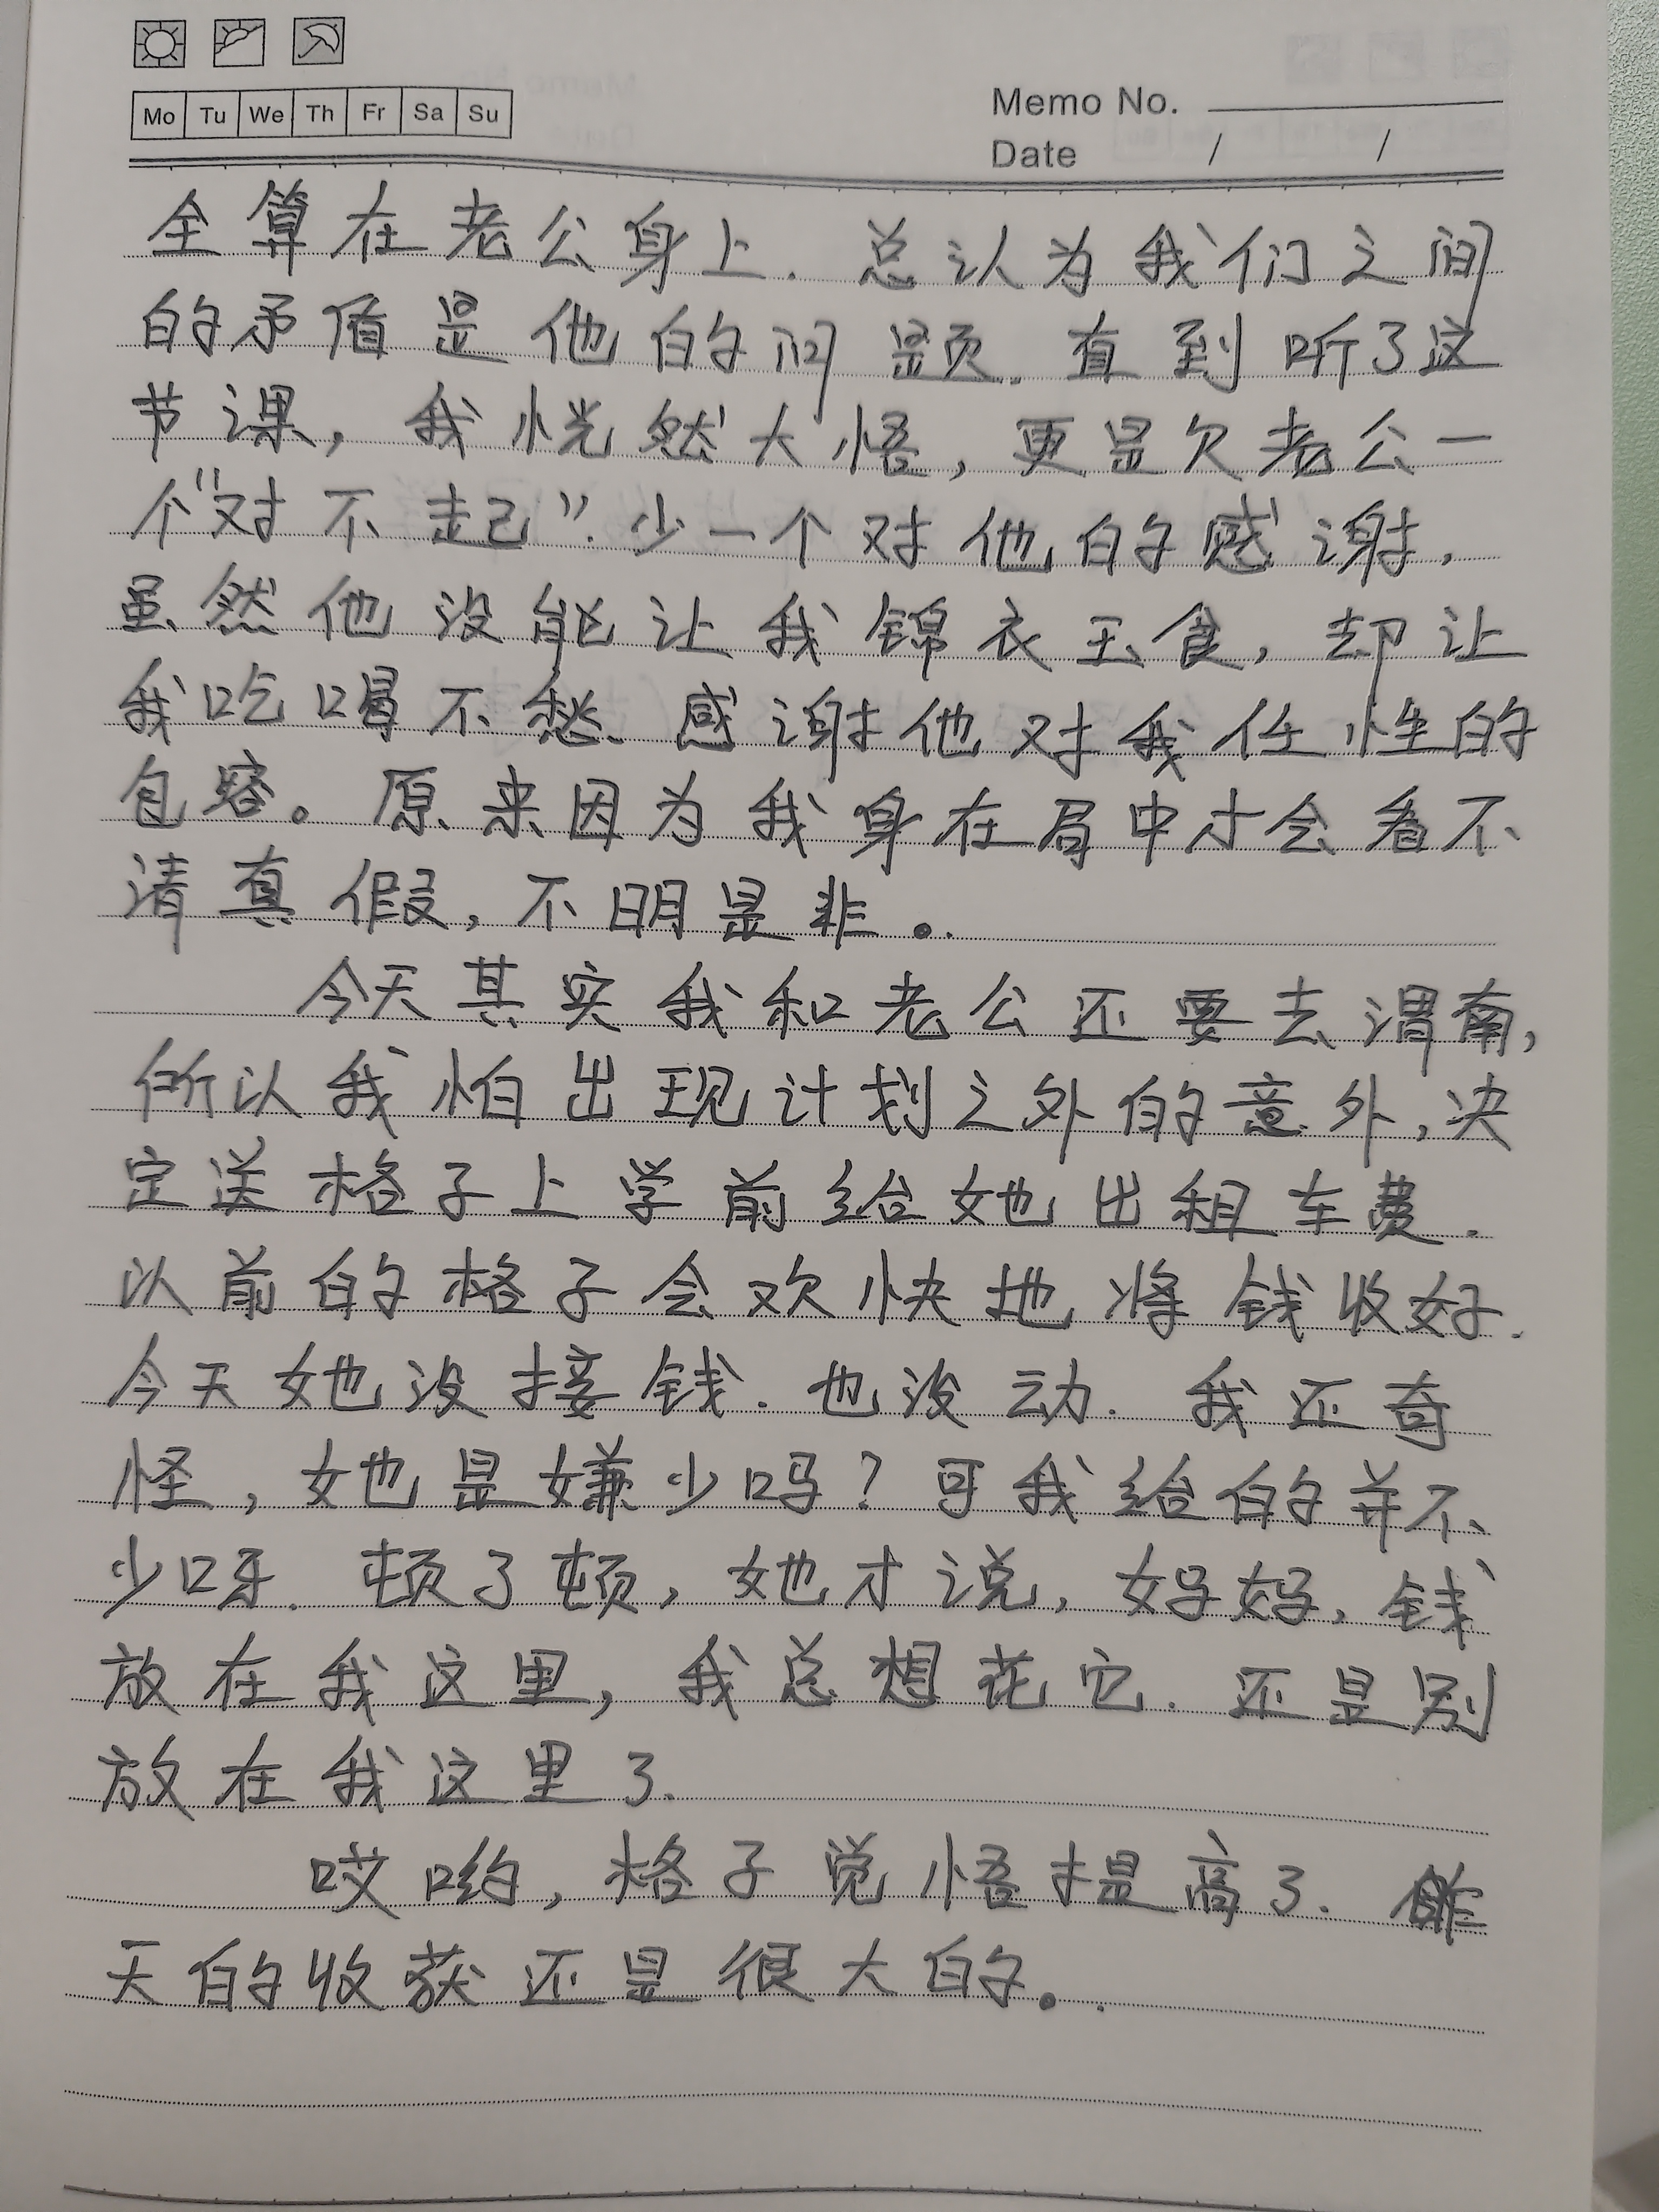 Mo Tu We Th Fr Sa Su
Memo No.
Date / /
全算在老公身上.总认为我们之间
的矛盾是他的问题.直到听了这
节课,我恍然大悟,更是欠老公一
个"对不起".少一个对他的感谢.
虽然他没能让我锦衣玉食,却让
我吃喝不愁.感谢他对我任性的
包容。原来因为我身在局中才会看不
清真假,不明是非。
今天其实我和老公还要去渭南,
所以我怕出现计划之外的意外,决
定送格子上学前给她出租车费.
以前的格子会欢快地将钱收好.
今天她没接钱.也没动.我还奇
怪,她是嫌少吗?可我给的并不
少呀.顿了顿,她才说,妈妈,钱
放在我这里,我总想花它.还是别
放在我这里了.
哎哟,格子觉悟提高了.昨
天的收获还是很大的。